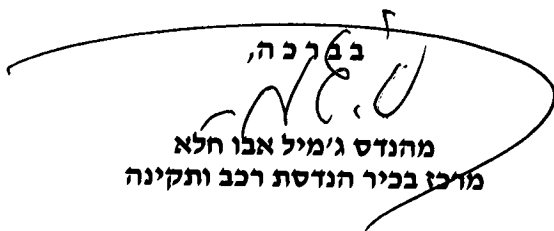 בברכה,
מהנדס ג'מיל אבו חלא
מרכז בכיר הנדסת רכב ותקינה